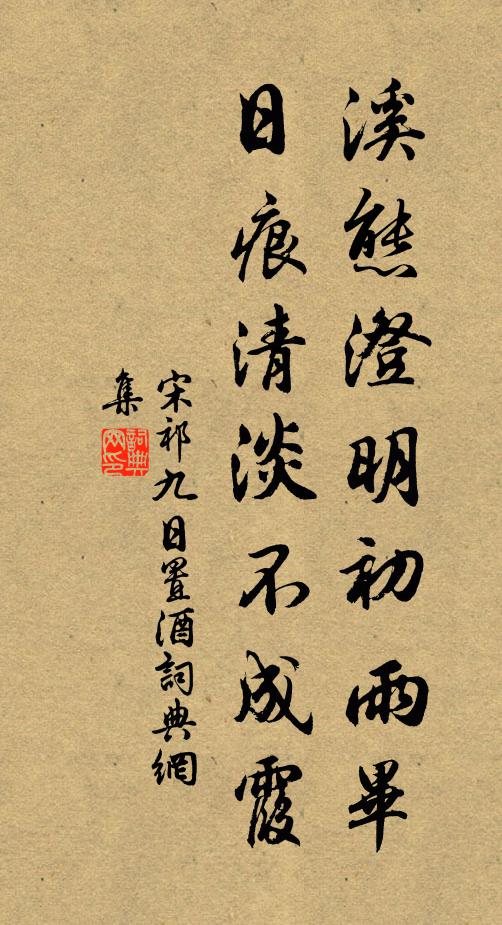 溪態澄明初雨畢
日痕清淡不成霞
宋祁九日置酒詞典網
集
詞典網印